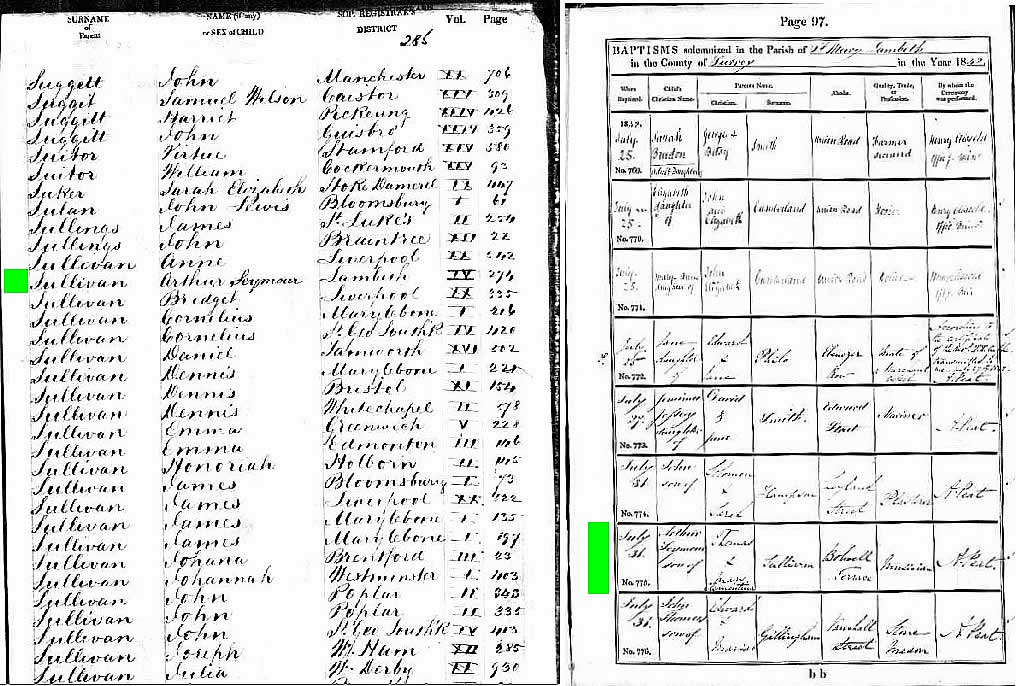 SURNAME
of
Parent
NAME (if any)
or SEX of CHILD
SUP. REGISTRAR'S
DISTRICT
Vol.
Page
285
Suggett John Manchester XX 706
Suggit Samuel Wilson Caistor XIV 309
Suggitt Harriet Pickering XXIV 426
Suggitt John Guisbro XXIV 359
Suitor Virtue Stamford XIV 580
Suitor William Cockermouth XXV 93
Suker Sarah Elizabeth Stoke Damerel IX 447
Sulan John Lewis Bloomsbury I 61
Sullings James St. Luke's II 254
Sullings John Braintree XII 22
Sullivan Anne Liverpool XX 242
Sullivan Arthur Seymour Lambeth IV 274
Sullivan Bridget Liverpool XX 335
Sullivan Cornelius Marylebone I 216
Sullivan Cornelius St Geo South K IV 420
Sullivan Daniel Tamworth XVI 502
Sullivan Dennis Marylebone I 221
Sullivan Dennis Bristol XI 154
Sullivan Dennis Whitechapel II 578
Sullivan Emma Greenwich V 228
Sullivan Emma Edmonton III 116
Sullivan Honoriah Holborn II
Sullivan James Bloomsbury I 73
Sullivan James Liverpool XX 422
Sullivan James Marylebone I 135
Sullivan James Marylebone I 157
Sullivan Johana Brentford III 23
Sullivan Johannah Westminster I 403
Sullivan John Poplar II 343
Sullivan John Poplar II 335
Sullivan John St Geo South K IV 403
Sullivan Joseph W. Ham XII 285
Sullivan Julia W. Derby XX 930
Page 97.
BAPTISMS solemnized in the Parish of St Mary Lambeth
in the County of Surrey in the Year 1842
When
Baptized.
Child's
Christian Name.
Parents Name.
Christian.
Surname.
Abode.
Quality, Trade,
or
Profession.
By whom the
Ceremony
was performed.
1842.
July
25.
No. 769.
Sarah
George &
Betsy
Smith
Union Road
Farmer
July
25.
No. 770.
Elizabeth
daughter
of
John
and
Elizabeth
Cumberland
Union Road
July
25.
No. 771.
Mary Ann
daughter of
John
Elizabeth
Cumberland
Union Road
July
No. 772.
Jane
daughter
of
Edward
&
Jane
Ebenezer
Row
Mate of
a
A. Peat.
July
No. 773.
daughter
of
David
&
Jane
Smith.
Edward
Street
Mariner
A. Peat.
July
31.
No. 774.
John
son of
Solomon
&
Sarah
Street
A. Peat
July
31.
No. 775.
Arthur
Seymour
son of
Thomas
&
Mary
Clementina
Sullivan
Bolwell
Terrace
Musician
A. Peat.
July
31.
No. 776.
John
Thomas
son of
Edward
&
Gillingham
Vauxhall
Street
Stone
Mason
A. Peat
b b